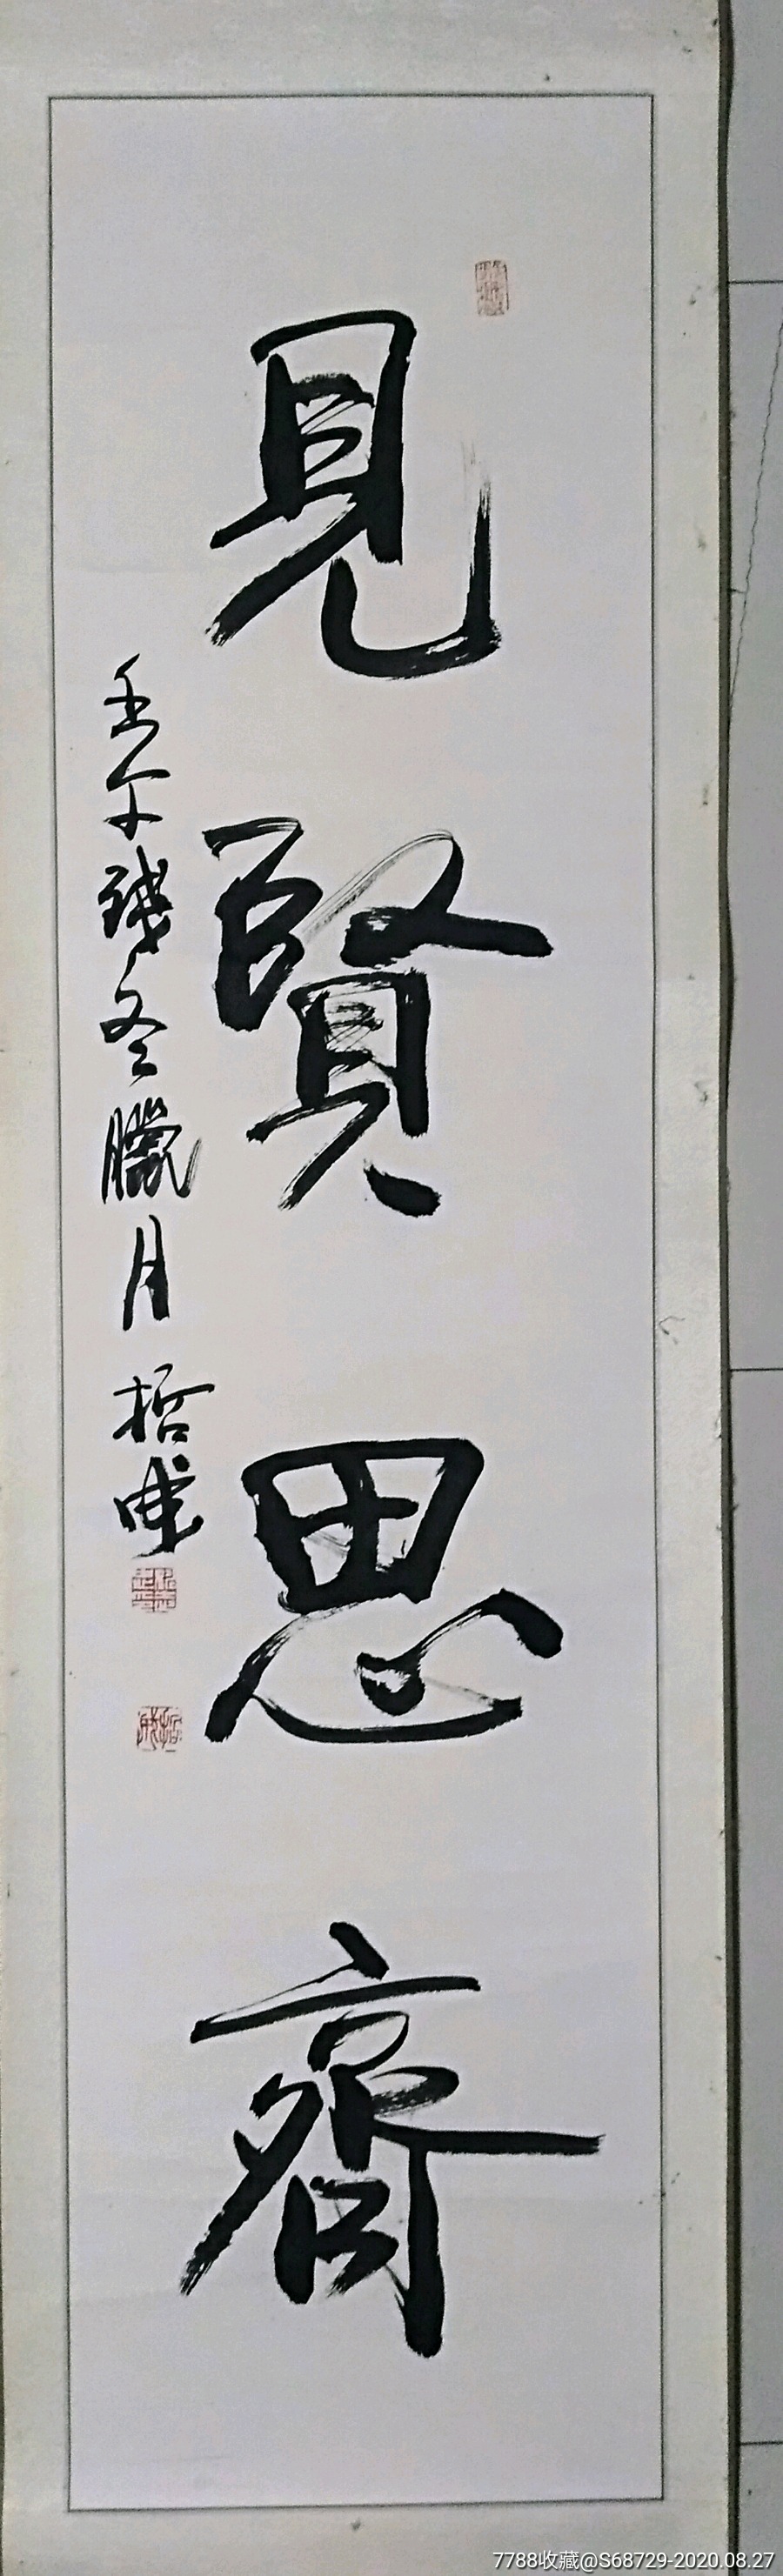 見賢思齊
壬午残冬臘月 哲成
7788收藏@S68729-2020.08.27